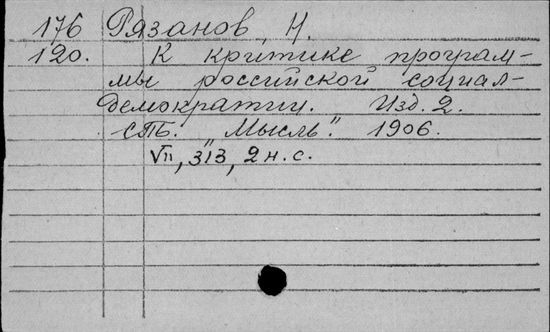 176 Рязанов, Н.
120. К критике програм-
мы российской социал-
демократии. Изд. 2.
СПб. "Мысль". 1906.
VII, 313, 2 н. с.